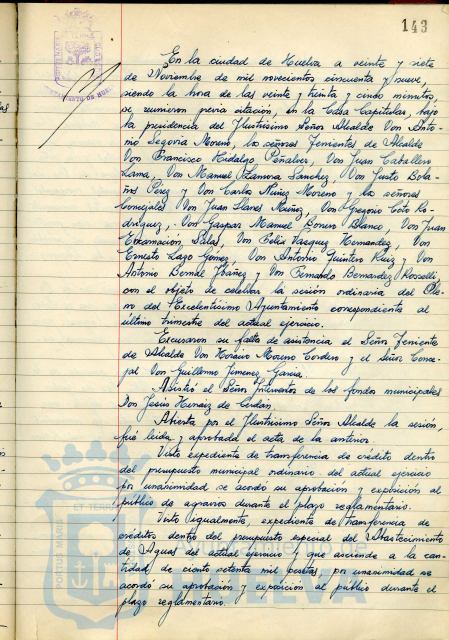 143
En la ciudad de Huelva a veinte y siete
de Noviembre de mil novecientos cincuenta y nueve,
siendo la hora de las veinte y treinta y cinco minutos
se reunieron previa citación, en la Casa Capitular, bajo
la presidencia del Ilustrísimo Señor Alcalde Don Anto-
nio Segovia Moreno, los señores Tenientes de Alcalde
Don Francisco Hidalgo Peñalver, Don Juan Caballero
Lama, Don Manuel Sanchez, Don Justo Bola-
ños Pérez y Don Carlos Nuñez Moreno y los señores
Concejales Don Juan Llanes Muñoz, Don Gregorio Cóto Ro-
driguez, Don Gaspar Manuel Bonero Blanco, Don Juan
Encarnación Salas, Don Felix Vazquez Hernandez, Don
Ernesto Lazo Gomez, Don Antonio Quintero Ruiz y Don
Antonio Bernal Ibáñez y Don Fernando Bernardez Rosselli,
con el objeto de celebrar la sesión ordinaria del Ple-
no del Excelentísimo Ayuntamiento correspondiente al
último trimestre del actual ejercicio.
Excusaron su falta de asistencia el Señor Teniente
de Alcalde Don Horacio Moreno Cordero y el Señor Conce-
jal Don Guillermo Jimenez Garcia.
Asistió el Señor Interventor de los fondos municipales
Don Jesús Hernaiz de Cerdan.
Abierta por el Ilustrísimo Señor Alcalde la sesión,
fué leida y aprobada el acta de la anterior.
Visto expediente de transferencia de crédito dentro
del presupuesto municipal ordinario del actual ejercicio
por unanimidad se acordó su aprobación y exposición al
público de agravios durante el plazo reglamentario.
Visto igualmente, expediente de transferencia de
créditos dentro del presupuesto especial del Abastecimiento
de Aguas del actual ejercicio y que asciende a la can-
tidad de ciento setenta mil pesetas, por unanimidad se
acordó su aprobación y exposición al público durante el
plazo reglamentario.